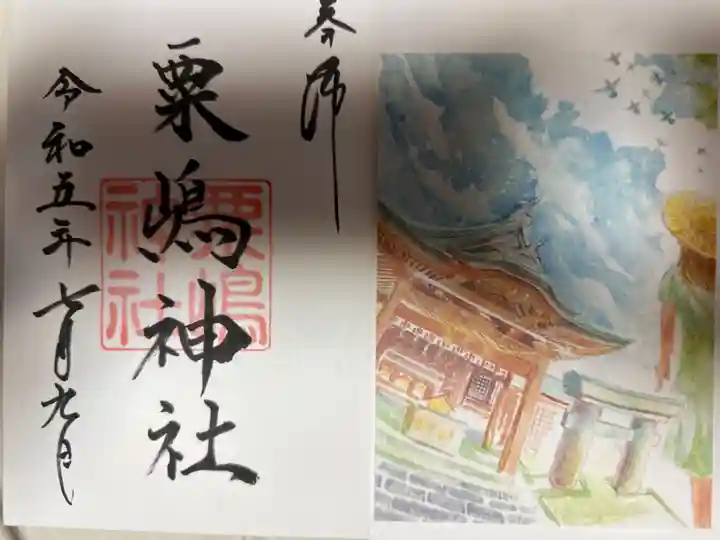 奉拝
粟嶋神社
粟嶋神社
令和五年七月九日